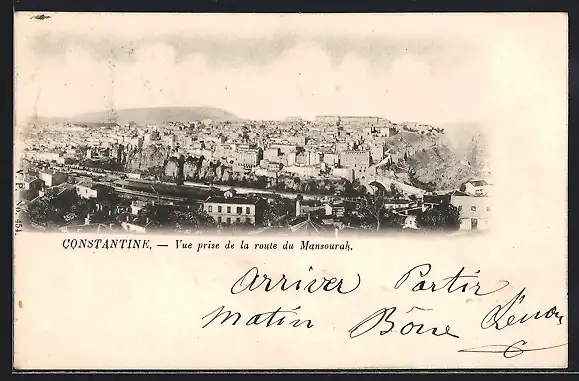 V. P. No. 151.
CONSTANTINE. — Vue prise de la route du Mansourah.
Arriver Partir
Matin Bône